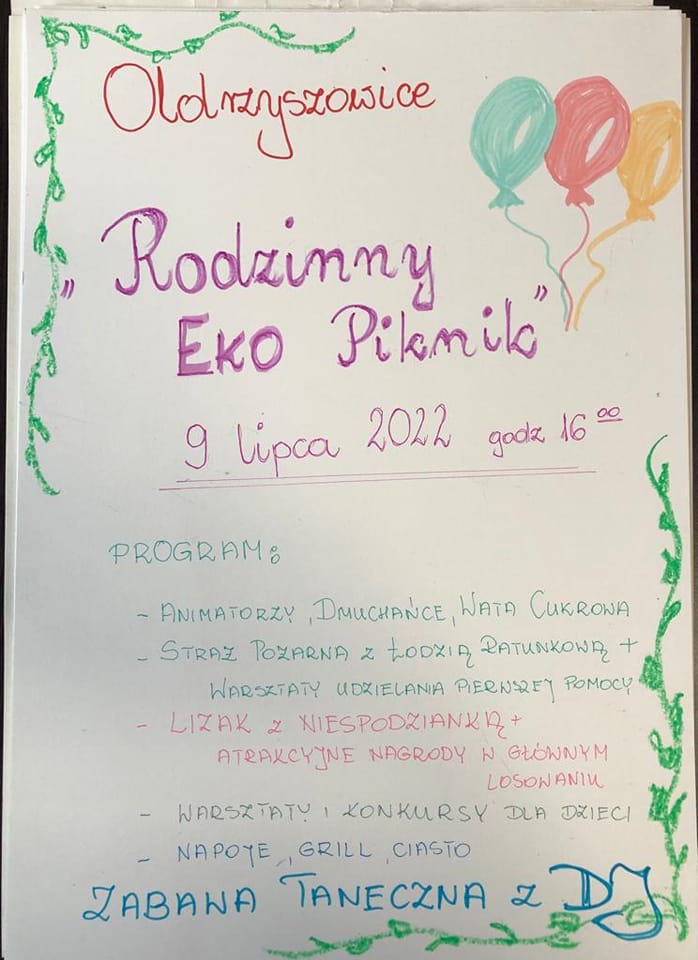 Oldrzyszowice
„Rodzinny
Eko Piknik”
9 lipca 2022 godz 16⁰⁰
PROGRAM:
- ANIMATORZY, DMUCHAŃCE, WATA CUKROWA
- STRAŻ POŻARNA Z ŁODZIĄ RATUNKOWĄ +
WARSZTATY UDZIELANIA PIERWSZEJ POMOCY
- LIZAK Z NIESPODZIANKĄ +
ATRAKCYJNE NAGRODY W GŁÓWNYM
LOSOWANIU
- WARSZTATY I KONKURSY DLA DZIECI
- NAPOJE, GRILL, CIASTO
ZABAWA TANECZNA Z DJ